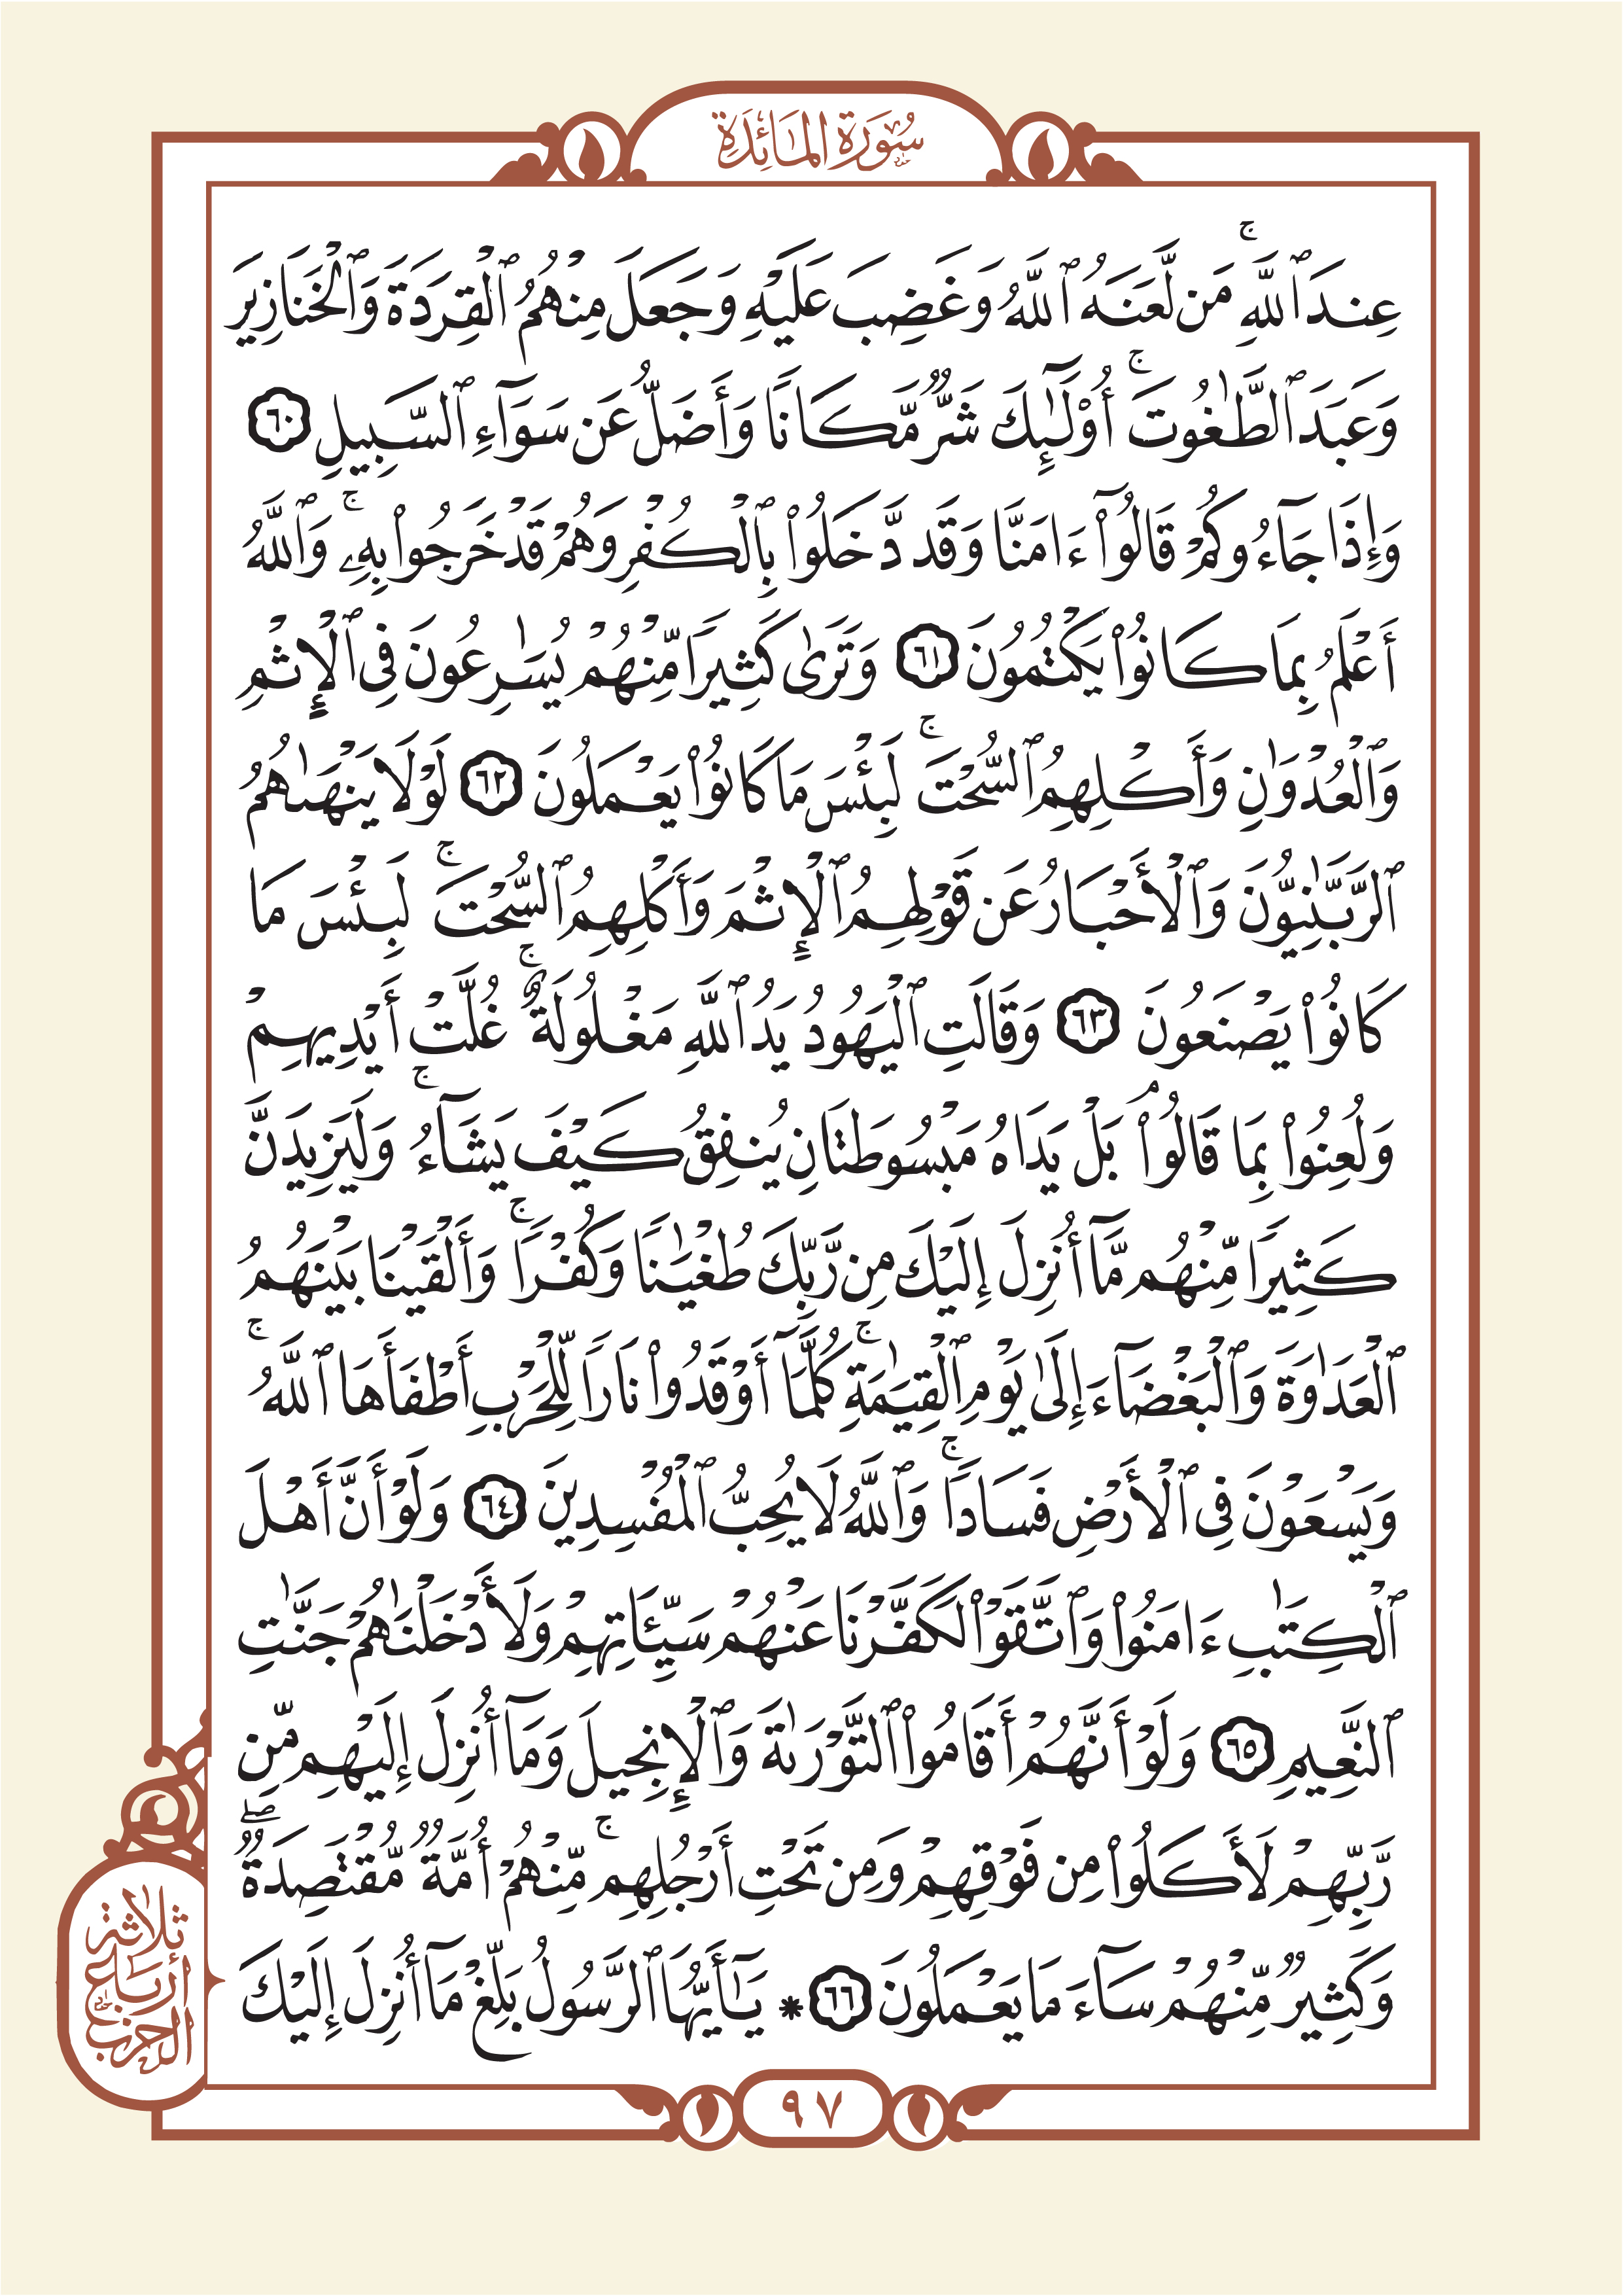 سُورَةُ المَائِدَةِ
عِندَ ٱللَّهِۚ مَن لَّعَنَهُ ٱللَّهُ وَغَضِبَ عَلَيْهِ وَجَعَلَ مِنْهُمُ ٱلْقِرَدَةَ وَٱلْخَنَازِيرَ
وَعَبَدَ ٱلطَّٰغُوتَۚ أُوْلَٰٓئِكَ شَرّٞ مَّكَانٗا وَأَضَلُّ عَن سَوَآءِ ٱلسَّبِيلِ ٦٠
وَإِذَا جَآءُوكُمْ قَالُوٓاْ ءَامَنَّا وَقَد دَّخَلُواْ بِٱلْكُفْرِ وَهُمْ قَدْ خَرَجُواْ بِهِۦۚ وَٱللَّهُ
أَعْلَمُ بِمَا كَانُواْ يَكْتُمُونَ ٦١ وَتَرَىٰ كَثِيرٗا مِّنْهُمْ يُسَٰرِعُونَ فِي ٱلْإِثْمِ
وَٱلْعُدْوَٰنِ وَأَكْلِهِمُ ٱلسُّحْتَۚ لَبِئْسَ مَا كَانُواْ يَعْمَلُونَ ٦٢ لَوْلَا يَنْهَىٰهُمُ
ٱلرَّبَّٰنِيُّونَ وَٱلْأَحْبَارُ عَن قَوْلِهِمُ ٱلْإِثْمَ وَأَكْلِهِمُ ٱلسُّحْتَۚ لَبِئْسَ مَا
كَانُواْ يَصْنَعُونَ ٦٣ وَقَالَتِ ٱلْيَهُودُ يَدُ ٱللَّهِ مَغْلُولَةٌۚ غُلَّتْ أَيْدِيهِمْ
وَلُعِنُواْ بِمَا قَالُواْۘ بَلْ يَدَاهُ مَبْسُوطَتَانِ يُنفِقُ كَيْفَ يَشَآءُۚ وَلَيَزِيدَنَّ
كَثِيرٗا مِّنْهُم مَّآ أُنزِلَ إِلَيْكَ مِن رَّبِّكَ طُغْيَٰنٗا وَكُفْرٗاۚ وَأَلْقَيْنَا بَيْنَهُمُ
ٱلْعَدَٰوَةَ وَٱلْبَغْضَآءَ إِلَىٰ يَوْمِ ٱلْقِيَٰمَةِۚ كُلَّمَآ أَوْقَدُواْ نَارٗا لِّلْحَرْبِ أَطْفَأَهَا ٱللَّهُۚ
وَيَسْعَوْنَ فِي ٱلْأَرْضِ فَسَادٗاۚ وَٱللَّهُ لَا يُحِبُّ ٱلْمُفْسِدِينَ ٦٤ وَلَوْ أَنَّ أَهْلَ
ٱلْكِتَٰبِ ءَامَنُواْ وَٱتَّقَوْاْ لَكَفَّرْنَا عَنْهُمْ سَيِّـَٔاتِهِمْ وَلَأَدْخَلْنَٰهُمْ جَنَّٰتِ
ٱلنَّعِيمِ ٦٥ وَلَوْ أَنَّهُمْ أَقَامُواْ ٱلتَّوْرَىٰةَ وَٱلْإِنجِيلَ وَمَآ أُنزِلَ إِلَيْهِم مِّن
رَّبِّهِمْ لَأَكَلُواْ مِن فَوْقِهِمْ وَمِن تَحْتِ أَرْجُلِهِمۚ مِّنْهُمْ أُمَّةٞ مُّقْتَصِدَةٞۖ
وَكَثِيرٞ مِّنْهُمْ سَآءَ مَا يَعْمَلُونَ ٦٦ * يَٰٓأَيُّهَا ٱلرَّسُولُ بَلِّغْ مَآ أُنزِلَ إِلَيْكَ
ثلاثة
أرباع
الحزب
٩٧